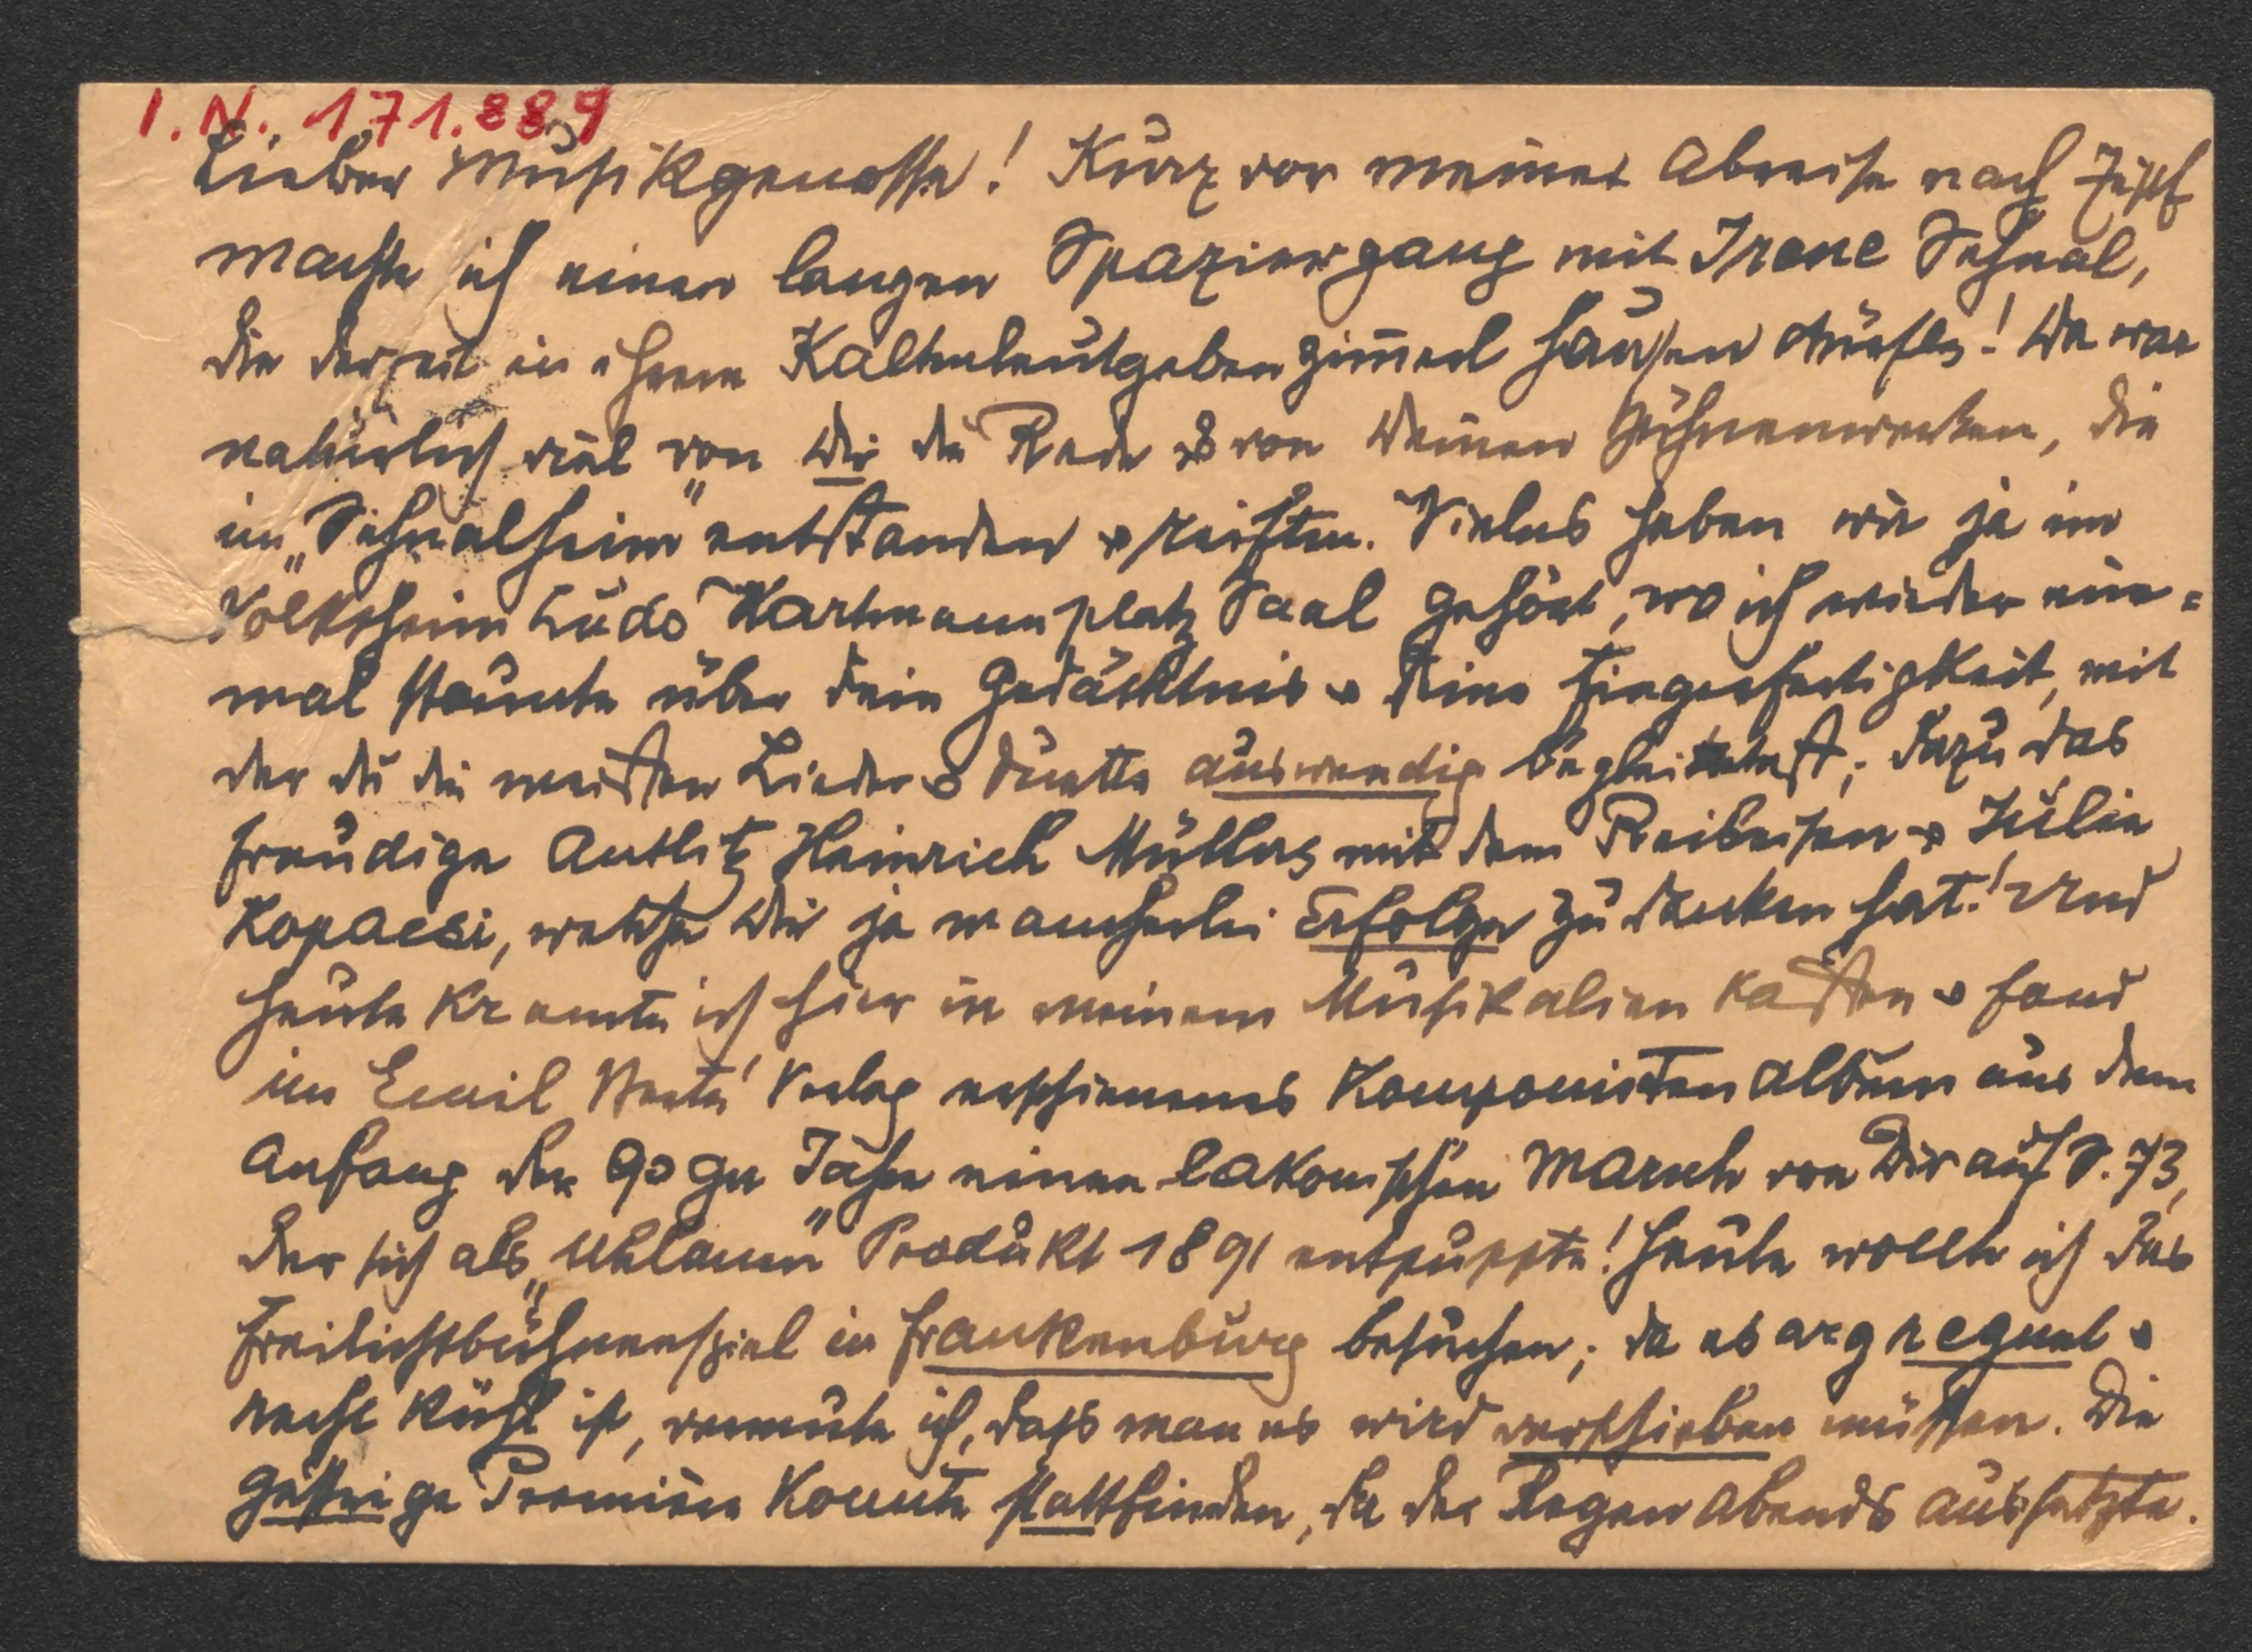 I.N. 171.889
Lieber Musikgenosse! Kurz vor meiner Abreise nach Ischl
machte ich einen langen Spaziergang mit Irene Sehnal,
die derzeit in ihrem Kaltenleutgebenzimmerl hausen dürfte! Da war
natürlich viel von Dir die Rede & von Deinen Bühnenwerken, die
im „Sehnalheim" entstanden & reiften. Vieles haben wir ja im
Volksheim Ludo Hartmannplatz Saal gehört, wo ich wieder ein=
mal staunte über dein Gedächtnis & Deine Fingerfertigkeit, mit
der du die meisten Lieder & Duette auswendig begleitetest; dazu das
freudige Antlitz Heinrich Müllers mit dem Reibeisen & Julie
Kopacsi, welche Dir ja mancherlei Erfolge zu danken hat! Und
heute kramte ich hier in meinem Musikalienkasten & fand
im Emil Berté Verlag erschienenes Komponistenalbum aus dem
Anfang der 90ger Jahre einen lakonischen Marsch von Dir auf S. 73,
der sich als „Uhlanen" Produkt 1891 entpuppte! Heute wollte ich das
Freilichtbühnenspiel in Frankenburg besuchen; da es arg regnet &
recht kühl ist, vermute ich, dass man es wird verschieben müssen. Die
gestrige Premiere konnte stattfinden, da der Regen abends aussetzte.